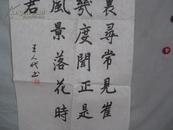 裏尋常見崔
幾度聞正是
風景落花時
君